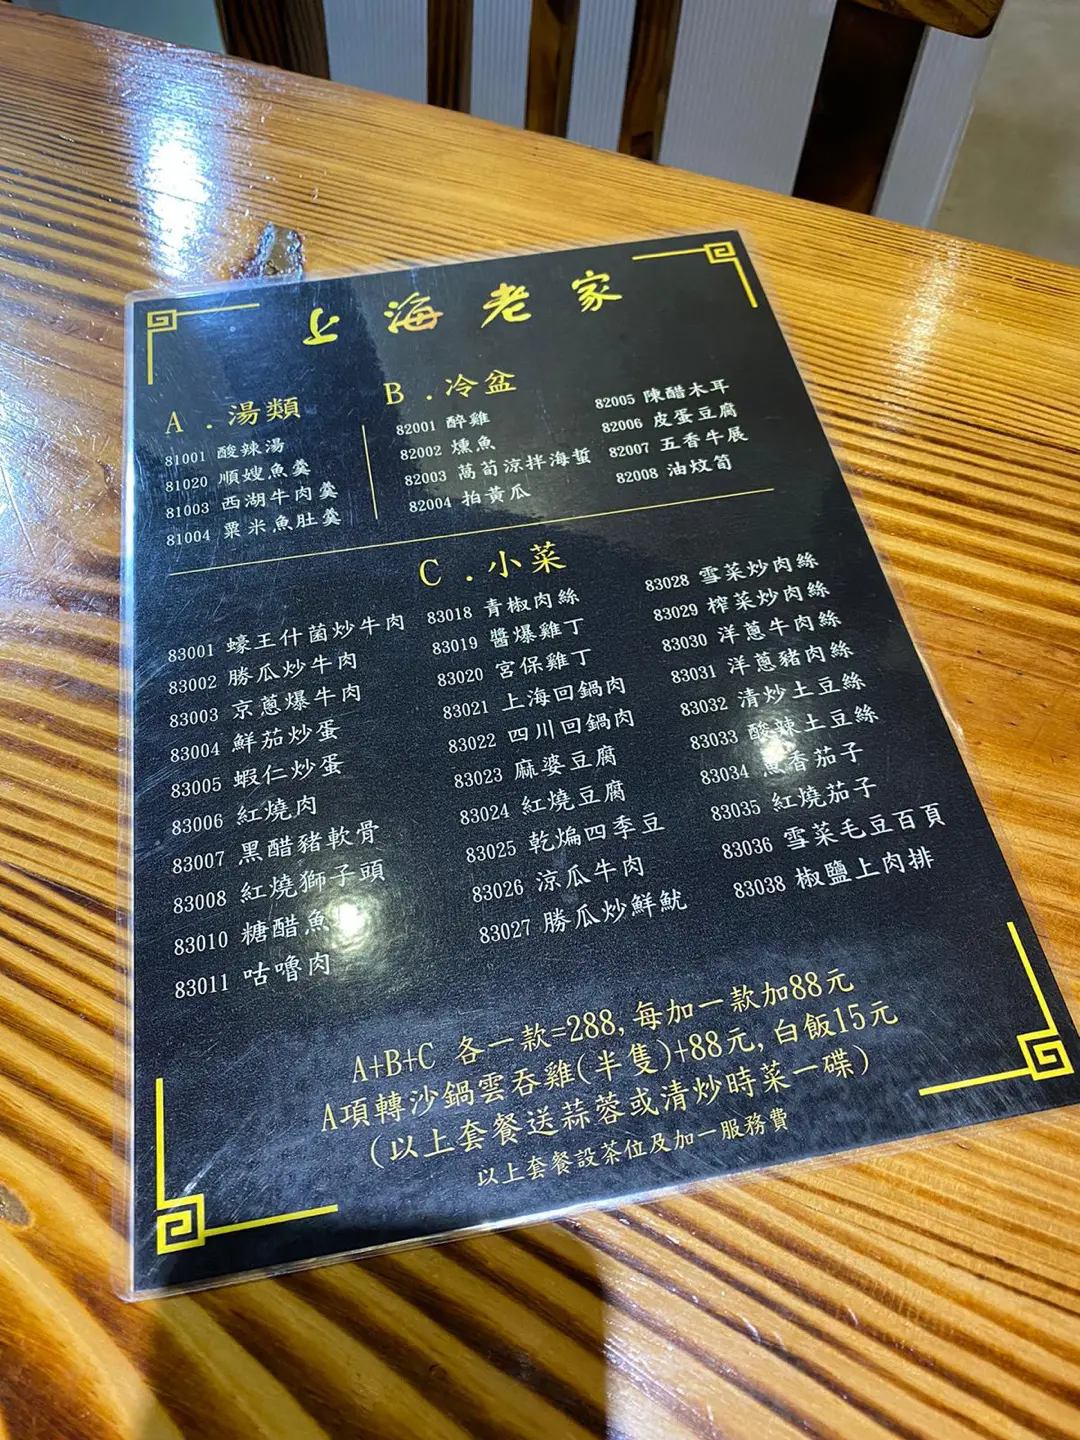 上海老家
A.湯類
81001 酸辣湯
81020 順嫂魚羹
81003 西湖牛肉羹
81004 粟米魚肚羹
B.冷盆
82001 醉雞
82002 燻魚
82003 萵荀涼拌海蜇
82004 拍黃瓜
82005 陳醋木耳
82006 皮蛋豆腐
82007 五香牛展
82008 油炆筍
C.小菜
83001 蠔王什菌炒牛肉
83002 勝瓜炒牛肉
83003 京蔥爆牛肉
83004 鮮茄炒蛋
83005 蝦仁炒蛋
83006 紅燒肉
83007 黑醋豬軟骨
83008 紅燒獅子頭
83010 糖醋魚
83011 咕嚕肉
83018 青椒肉絲
83019 醬爆雞丁
83020 宮保雞丁
83021 上海回鍋肉
83022 四川回鍋肉
83023 麻婆豆腐
83024 紅燒豆腐
83025 乾煸四季豆
83026 涼瓜牛肉
83027 勝瓜炒鮮魷
83028 雪菜炒肉絲
83029 榨菜炒肉絲
83030 洋蔥牛肉絲
83031 洋蔥豬肉絲
83032 清炒土豆絲
83033 酸辣土豆絲
83034 魚香茄子
83035 紅燒茄子
83036 雪菜毛豆百頁
83038 椒鹽上肉排
A+B+C 各一款=288,每加一款加88元
A項轉沙鍋雲吞雞(半隻)+88元,白飯15元
(以上套餐送蒜蓉或清炒時菜一碟)
以上套餐設茶位及加一服務費